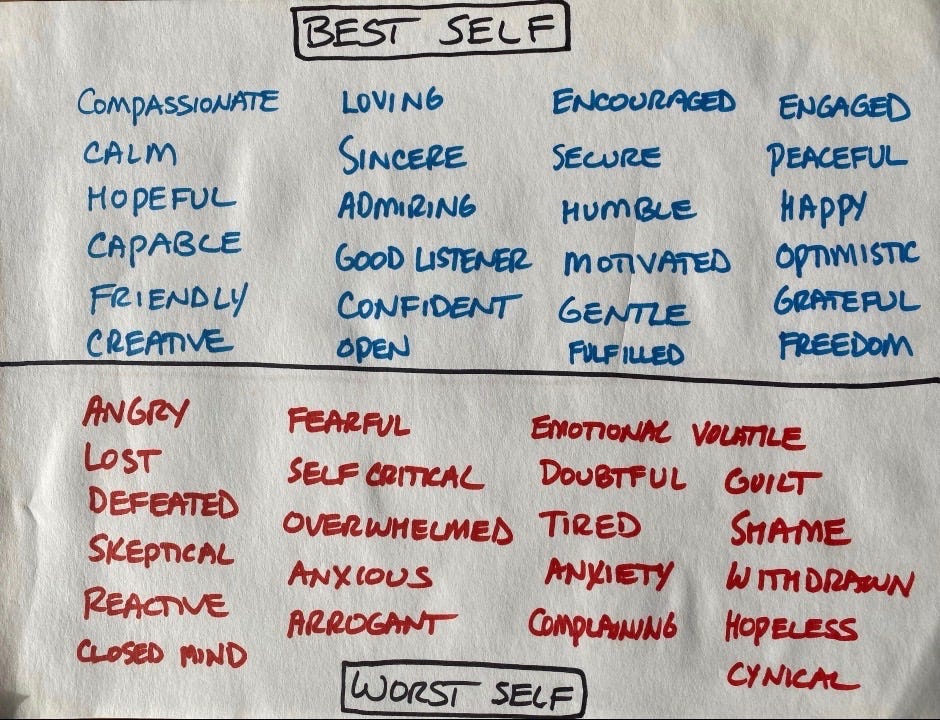 BEST SELF
COMPASSIONATE LOVING ENCOURAGED ENGAGED
CALM SINCERE SECURE PEACEFUL
HOPEFUL ADMIRING HUMBLE HAPPY
CAPABLE GOOD LISTENER MOTIVATED OPTIMISTIC
FRIENDLY CONFIDENT GENTLE GRATEFUL
CREATIVE OPEN FULFILLED FREEDOM
ANGRY FEARFUL EMOTIONAL VOLATILE
LOST SELF CRITICAL DOUBTFUL GUILT
DEFEATED OVERWHELMED TIRED SHAME
SKEPTICAL ANXIOUS ANXIETY WITHDRAWN
REACTIVE ARROGANT COMPLAINING HOPELESS
CLOSED MIND CYNICAL
WORST SELF